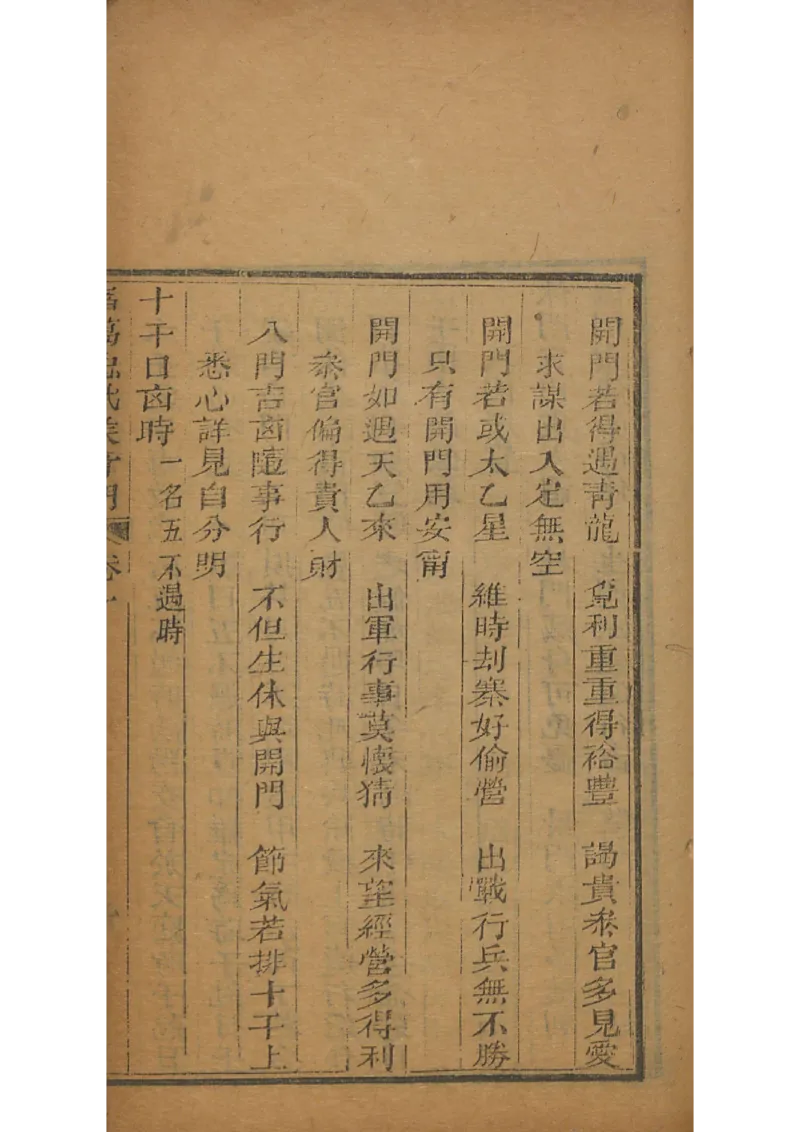 開門若得遇靑龍　覔利重重得裕豐　謁貴叅官多見愛
求謀出入定無空
開門若或太乙星　維時刦寨好偷營　出戰行兵無不勝
只有開門用安甯
開門如遇天乙來　出軍行事莫懷猜　來望經營多得利
叅官偏得貴人財
八門吉囟隨事行　不但生休與開門　節氣若排十干上
悉心詳見自分明
十干口囟時　一名五不遇時
諸葛武侯奇門　卷一